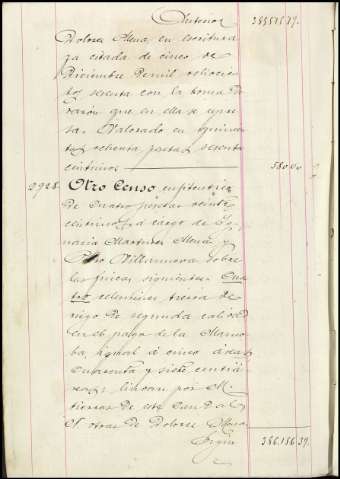 Anterior 385575.79.
Dolores Mena, en escritura
ya citada de cinco de
Diciembre de mil ochocien-
tos setenta con la toma de
razón que en ella se expre-
sa. Valorado en quinien-
tos ochenta pesetas sesenta
céntimos 580.60
2928. Otro Censo enfiteutico
de cuatro pesetas veinte
céntimos á cargo de Ig-
nacia Martinez Mena y
Pedro Villanueva sobre
las fincas siguientes: Cua-
tro celemines tierra de
riego de segunda calidad
en el pago de la
igual á cinco áreas
cuarenta y siete centiá-
reas; lindan por M.
tierras de este Caudal
N. otras de Dolores Mena
Sigue 386.156.39.